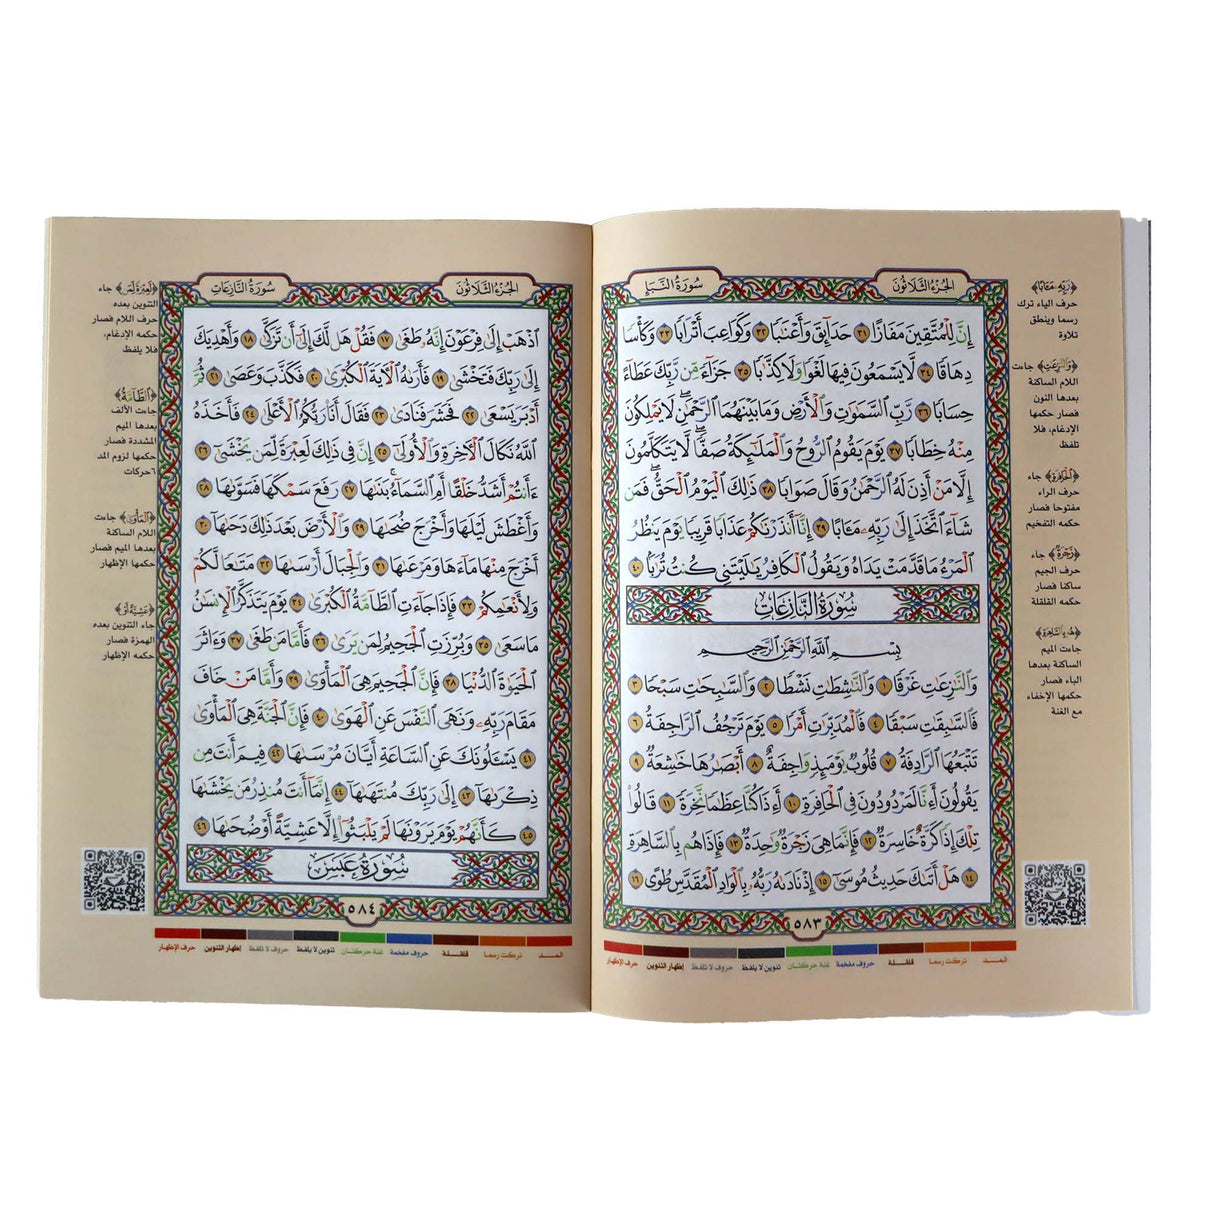 الجزء الثلاثون
سورة النبإ
إِنَّ لِلْمُتَّقِينَ مَفَازًا ٣١ حَدَآئِقَ وَأَعْنَٰبًا ٣٢ وَكَوَاعِبَ أَتْرَابًا ٣٣ وَكَأْسًا
دِهَاقًا ٣٤ لَّا يَسْمَعُونَ فِيهَا لَغْوًا وَلَا كِذَّٰبًا ٣٥ جَزَآءً مِّن رَّبِّكَ عَطَآءً
حِسَابًا ٣٦ رَّبِّ ٱلسَّمَٰوَٰتِ وَٱلْأَرْضِ وَمَا بَيْنَهُمَا ٱلرَّحْمَٰنِ لَا يَمْلِكُونَ
مِنْهُ خِطَابًا ٣٧ يَوْمَ يَقُومُ ٱلرُّوحُ وَٱلْمَلَٰٓئِكَةُ صَفًّا لَّا يَتَكَلَّمُونَ
إِلَّا مَنْ أَذِنَ لَهُ ٱلرَّحْمَٰنُ وَقَالَ صَوَابًا ٣٨ ذَٰلِكَ ٱلْيَوْمُ ٱلْحَقُّ فَمَن
شَآءَ ٱتَّخَذَ إِلَىٰ رَبِّهِۦ مَـَٔابًا ٣٩ إِنَّآ أَنذَرْنَٰكُمْ عَذَابًا قَرِيبًا يَوْمَ يَنظُرُ
ٱلْمَرْءُ مَا قَدَّمَتْ يَدَاهُ وَيَقُولُ ٱلْكَافِرُ يَٰلَيْتَنِى كُنتُ تُرَٰبًۢا ٤٠
سورة النازعات
بِسْمِ ٱللَّهِ ٱلرَّحْمَٰنِ ٱلرَّحِيمِ
وَٱلنَّٰزِعَٰتِ غَرْقًا ١ وَٱلنَّٰشِطَٰتِ نَشْطًا ٢ وَٱلسَّٰبِحَٰتِ سَبْحًا ٣
فَٱلسَّٰبِقَٰتِ سَبْقًا ٤ فَٱلْمُدَبِّرَٰتِ أَمْرًا ٥ يَوْمَ تَرْجُفُ ٱلرَّاجِفَةُ ٦
تَتْبَعُهَا ٱلرَّادِفَةُ ٧ قُلُوبٌ يَوْمَئِذٍ وَاجِفَةٌ ٨ أَبْصَٰرُهَا خَٰشِعَةٌ ٩
يَقُولُونَ أَءِنَّا لَمَرْدُودُونَ فِى ٱلْحَافِرَةِ ١٠ أَءِذَا كُنَّا عِظَٰمًا نَّخِرَةً ١١ قَالُوا۟
تِلْكَ إِذًا كَرَّةٌ خَاسِرَةٌ ١٢ فَإِنَّمَا هِىَ زَجْرَةٌ وَٰحِدَةٌ ١٣ فَإِذَا هُم بِٱلسَّاهِرَةِ
١٤ هَلْ أَتَىٰكَ حَدِيثُ مُوسَىٰٓ ١٥ إِذْ نَادَىٰهُ رَبُّهُۥ بِٱلْوَادِ ٱلْمُقَدَّسِ طُوًى ١٦
٥٨٣
﴿رَبِّهِۦ مَـَٔابًا﴾
حرف الياء ترك
رسما وينطق
تلاوة
﴿وَٱلنَّٰزِعَٰتِ﴾ جاءت
اللام الساكنة
بعدها النون
فصار حكمها
الإدغام، فلا
تلفظ
﴿ٱلْحَافِرَةِ﴾ جاء
حرف الراء
مفتوحا فصار
حكمه التفخيم
﴿زَجْرَةٌ﴾ جاء
حرف الجيم
ساكنا فصار
حكمه القلقلة
﴿هُم بِٱلسَّاهِرَةِ﴾
جاءت الميم
الساكنة بعدها
الباء فصار
حكمها الإخفاء
مع الغنة
المـــد تركت رسما قلقـــلة حروف مفخمة غنة حركتان تنوين لا يلفظ حروف لا تلفظ إظهار التنوين حرف الإظهار
الجزء الثلاثون
سورة النازعات
ٱذْهَبْ إِلَىٰ فِرْعَوْنَ إِنَّهُۥ طَغَىٰ ١٧ فَقُلْ هَل لَّكَ إِلَىٰٓ أَن تَزَكَّىٰ ١٨ وَأَهْدِيَكَ
إِلَىٰ رَبِّكَ فَتَخْشَىٰ ١٩ فَأَرَىٰهُ ٱلْءَايَةَ ٱلْكُبْرَىٰ ٢٠ فَكَذَّبَ وَعَصَىٰ ٢١ ثُمَّ
أَدْبَرَ يَسْعَىٰ ٢٢ فَحَشَرَ فَنَادَىٰ ٢٣ فَقَالَ أَنَا۠ رَبُّكُمُ ٱلْأَعْلَىٰ ٢٤ فَأَخَذَهُ
ٱللَّهُ نَكَالَ ٱلْءَاخِرَةِ وَٱلْأُولَىٰٓ ٢٥ إِنَّ فِى ذَٰلِكَ لَعِبْرَةً لِّمَن يَخْشَىٰٓ ٢٦
ءَأَنتُمْ أَشَدُّ خَلْقًا أَمِ ٱلسَّمَآءُ بَنَىٰهَا ٢٧ رَفَعَ سَمْكَهَا فَسَوَّىٰهَا ٢٨
وَأَغْطَشَ لَيْلَهَا وَأَخْرَجَ ضُحَىٰهَا ٢٩ وَٱلْأَرْضَ بَعْدَ ذَٰلِكَ دَحَىٰهَآ ٣٠
أَخْرَجَ مِنْهَا مَآءَهَا وَمَرْعَىٰهَا ٣١ وَٱلْجِبَالَ أَرْسَىٰهَا ٣٢ مَتَٰعًا لَّكُمْ
وَلِأَنْعَٰمِكُمْ ٣٣ فَإِذَا جَآءَتِ ٱلطَّآمَّةُ ٱلْكُبْرَىٰ ٣٤ يَوْمَ يَتَذَكَّرُ ٱلْإِنسَٰنُ
مَا سَعَىٰ ٣٥ وَبُرِّزَتِ ٱلْجَحِيمُ لِمَن يَرَىٰ ٣٦ فَأَمَّا مَن طَغَىٰ ٣٧ وَءَاثَرَ
ٱلْحَيَوٰةَ ٱلدُّنْيَا ٣٨ فَإِنَّ ٱلْجَحِيمَ هِىَ ٱلْمَأْوَىٰ ٣٩ وَأَمَّا مَنْ خَافَ
مَقَامَ رَبِّهِۦ وَنَهَى ٱلنَّفْسَ عَنِ ٱلْهَوَىٰ ٤٠ فَإِنَّ ٱلْجَنَّةَ هِىَ ٱلْمَأْوَىٰ
٤١ يَسْـَٔلُونَكَ عَنِ ٱلسَّاعَةِ أَيَّانَ مُرْسَىٰهَا ٤٢ فِيمَ أَنتَ مِن
ذِكْرَىٰهَآ ٤٣ إِلَىٰ رَبِّكَ مُنتَهَىٰهَآ ٤٤ إِنَّمَآ أَنتَ مُنذِرُ مَن يَخْشَىٰهَا
٤٥ كَأَنَّهُمْ يَوْمَ يَرَوْنَهَا لَمْ يَلْبَثُوٓا۟ إِلَّا عَشِيَّةً أَوْ ضُحَىٰهَا ٤٦
سورة عبس
٥٨٤
﴿لَعِبْرَةً لِّمَن﴾ جاء
التنوين بعده
حرف اللام فصار
حكمه الإدغام،
فلا يلفظ
﴿ٱلطَّآمَّةُ﴾
جاءت الألف
بعدها الميم
المشددة فصار
حكمها لزوم المد
٦حركات
﴿ٱلْمَأْوَىٰ﴾ جاءت
اللام الساكنة
بعدها الميم فصار
حكمها الإظهار
﴿عَشِيَّةً أَوْ﴾
جاء التنوين بعده
الهمزة فصار
حكمه الإظهار
المـــد تركت رسما قلقـــلة حروف مفخمة غنة حركتان تنوين لا يلفظ حروف لا تلفظ إظهار التنوين حرف الإظهار